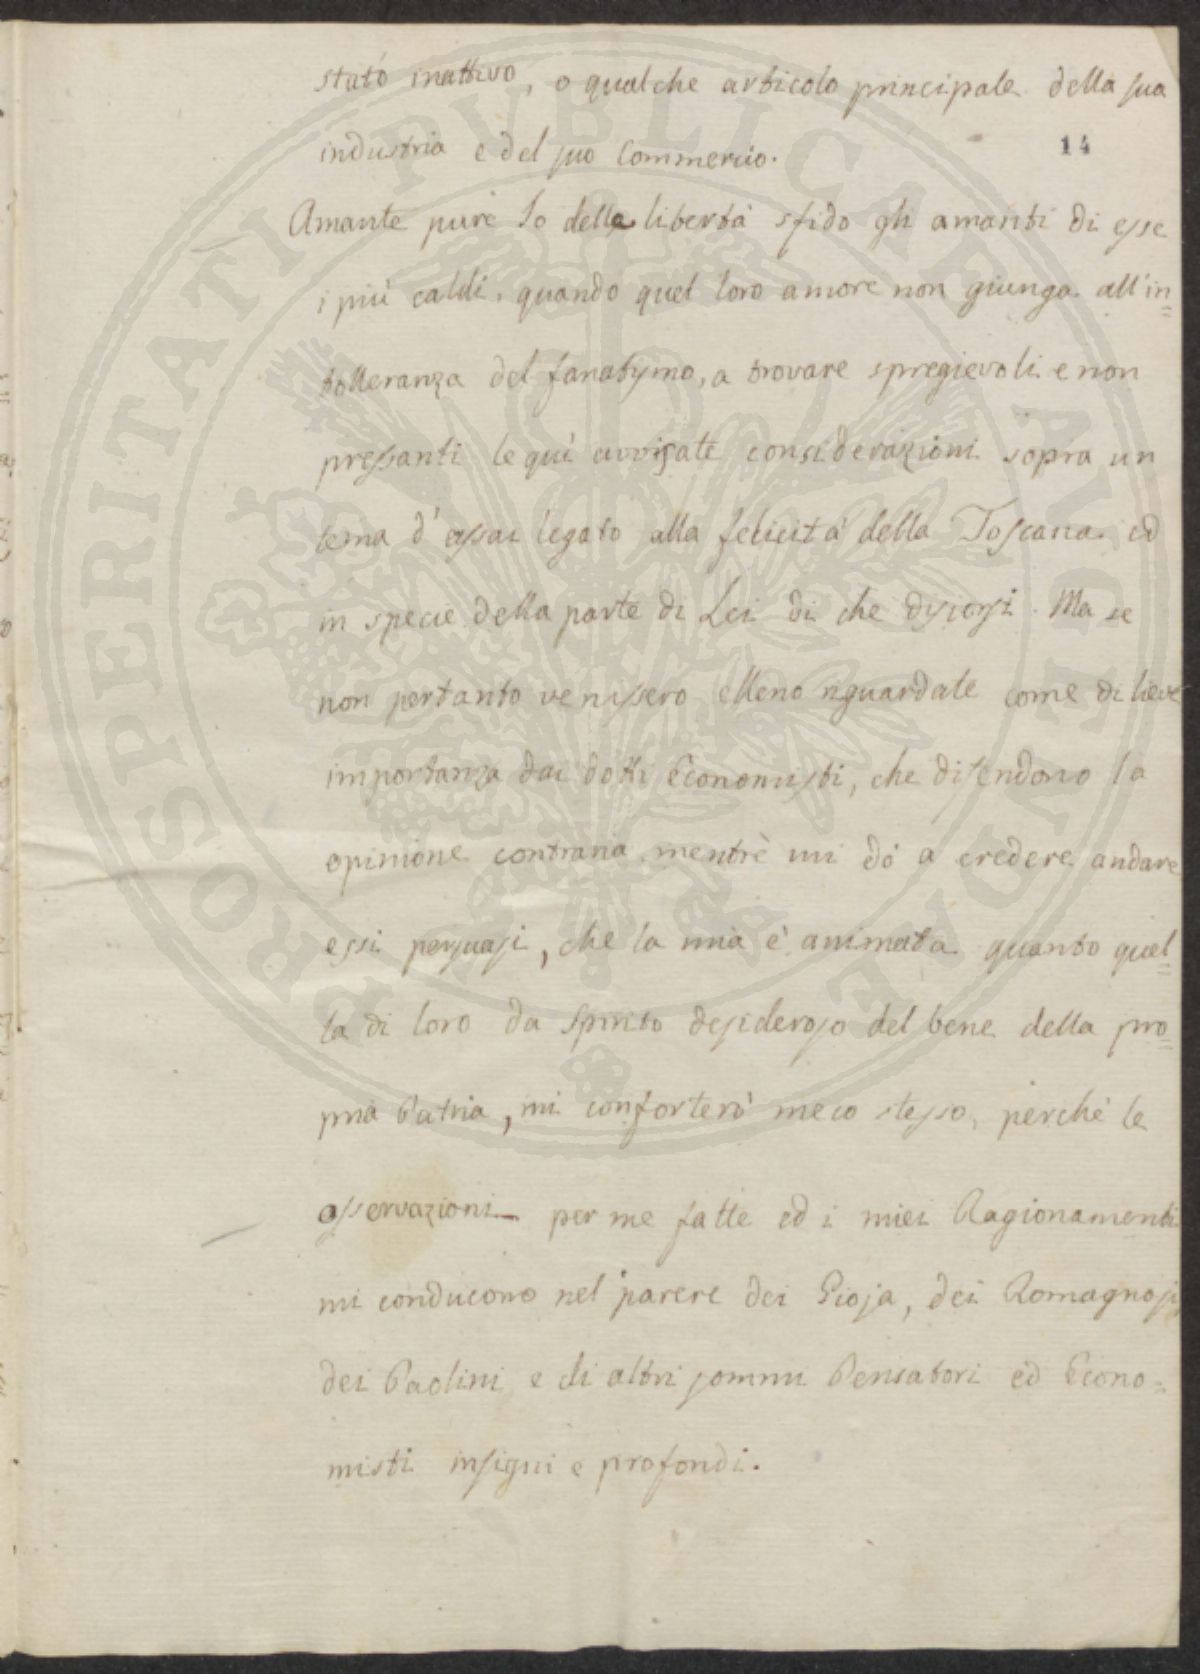 stato inattivo, o qualche articolo principale della sua
industria e del suo Commercio.
14
Amante pure Io della libertà sfido gli amanti di esse
i più caldi, quando quel loro amore non giunga all'in=
tolleranza del fanatismo, a trovare spregievoli e non
pressanti le quì avvisate considerazioni sopra un
tema d'assai legato alla felicità della Toscana ed
in specie della parte di Lei di che discorsi. Ma se
non pertanto venissero elleno riguardate come di lieve
importanza dai dotti Economisti, che difendono la
opinione contraria, mentrè mi dò a credere andare
essi persuasi, che la mia è animata quanto quel=
la di loro da spirito desideroso del bene della pro=
pria Patria, mi conforterò meco stesso, perchè le
osservazioni per me fatte ed i miei Ragionamenti
mi conducono nel parere dei Gioja, dei Romagnosi
dei Paolini e di altri sommi Pensatori ed Econo=
misti insigni e profondi.
PROSPERITATI PVBLICAE AVGENDAE